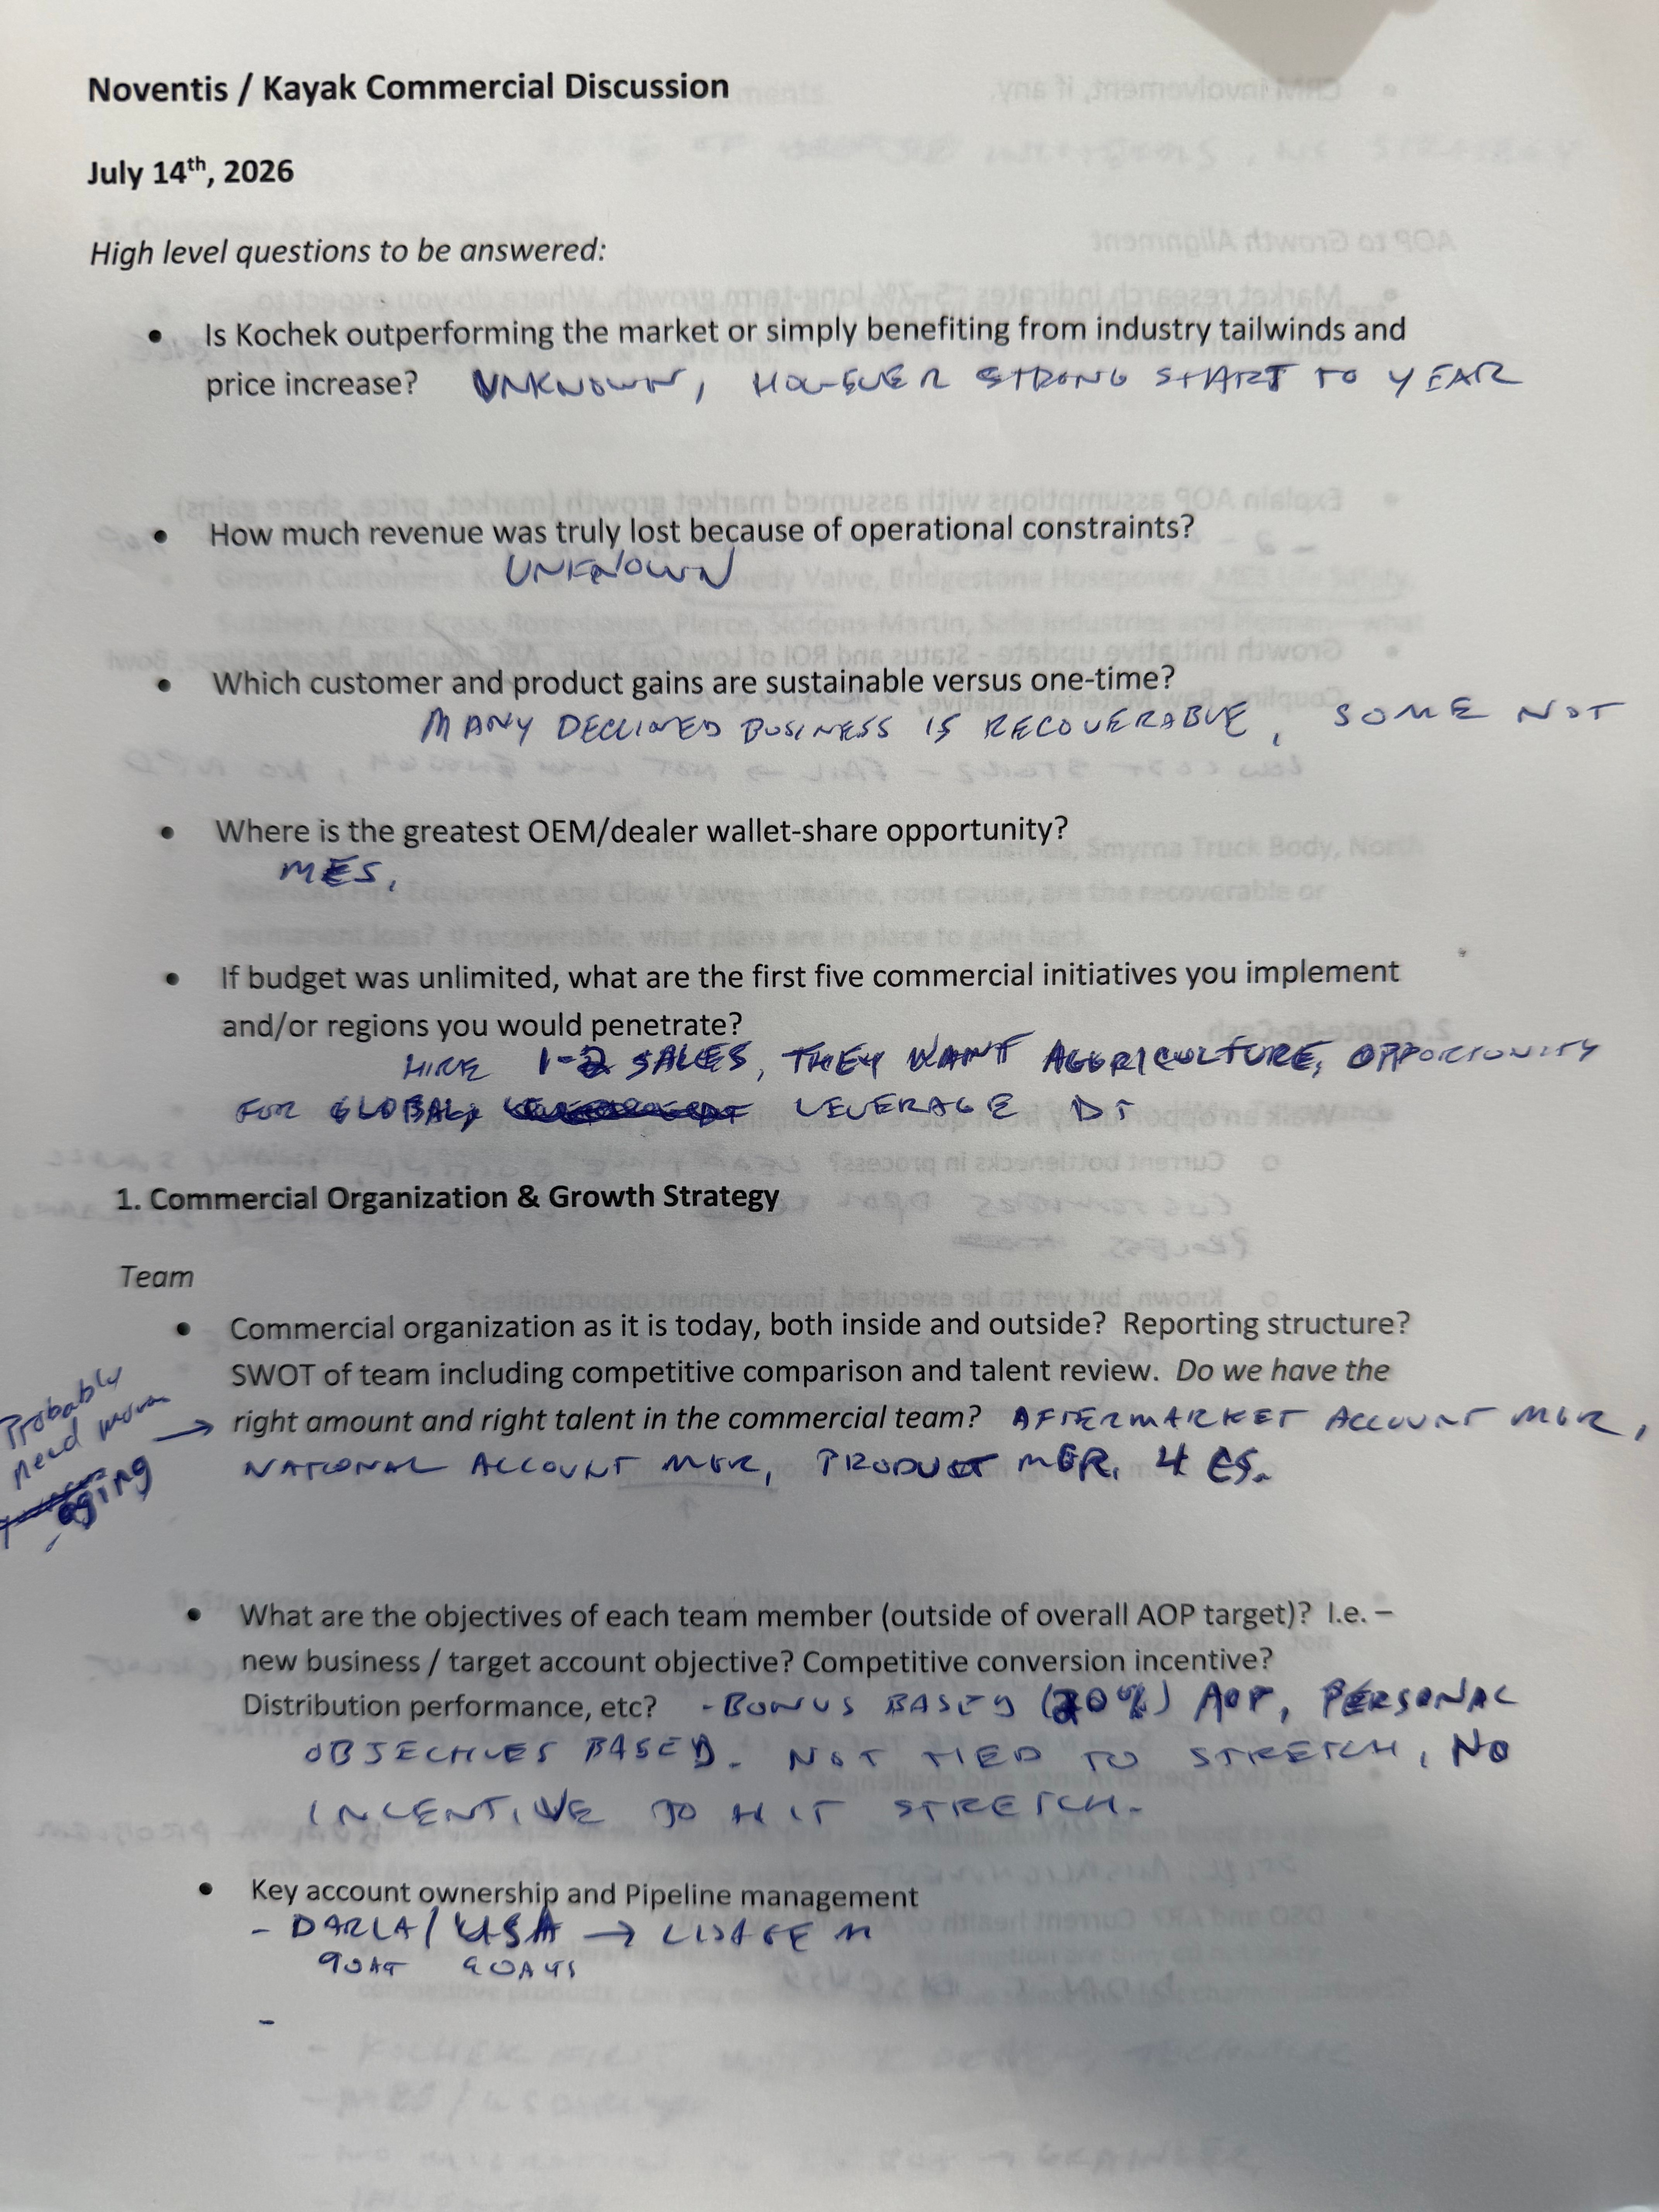 Noventis / Kayak Commercial Discussion
July 14th, 2026
High level questions to be answered:
• Is Kochek outperforming the market or simply benefiting from industry tailwinds and
price increase? UNKNOWN, HOWEVER STRONG START TO YEAR
• How much revenue was truly lost because of operational constraints?
UNKNOWN
• Which customer and product gains are sustainable versus one-time?
MANY DECLINED BUSINESS IS RECOVERABLE, SOME NOT
• Where is the greatest OEM/dealer wallet-share opportunity?
MES.
• If budget was unlimited, what are the first five commercial initiatives you implement
and/or regions you would penetrate?
HIRE 1-2 SALES, THEY WANT AGGRICULTURE, OPPORTUNITY
FOR GLOBAL, LEVERAGE DT
1. Commercial Organization & Growth Strategy
Team
• Commercial organization as it is today, both inside and outside? Reporting structure?
SWOT of team including competitive comparison and talent review. Do we have the
right amount and right talent in the commercial team? AFTERMARKET ACCOUNT MGR,
NATIONAL ACCOUNT MGR, PRODUCT MGR, 4 CS.
Probably
need
aging
• What are the objectives of each team member (outside of overall AOP target)? I.e. –
new business / target account objective? Competitive conversion incentive?
Distribution performance, etc? - BONUS BASED (20%) AOP, PERSONAL
OBJECTIVES BASED. NOT TIED TO STRETCH, NO
INCENTIVE TO HIT STRETCH.
• Key account ownership and Pipeline management
- DARLA / LISA →
-